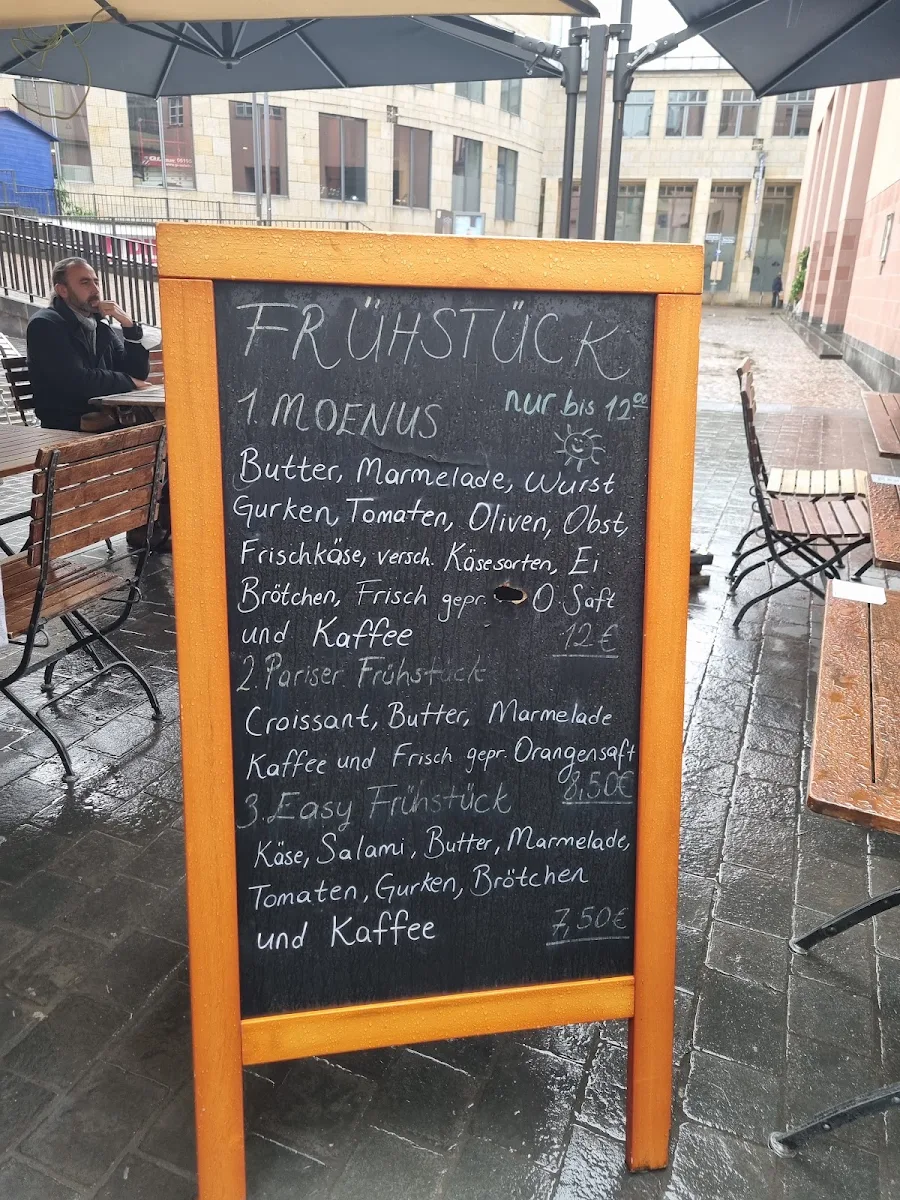 FRÜHSTÜCK
1. MOENUS nur bis 12⁰⁰
Butter, Marmelade, Wurst
Gurken, Tomaten, Oliven, Obst,
Frischkäse, versch. Käsesorten, Ei
Brötchen, Frisch gepr. O. Saft
und Kaffee 12€
2. Pariser Frühstück
Croissant, Butter, Marmelade
Kaffee und Frisch gepr. Orangensaft
8,50€
3. Easy Frühstück
Käse, Salami, Butter, Marmelade,
Tomaten, Gurken, Brötchen
und Kaffee 7,50€